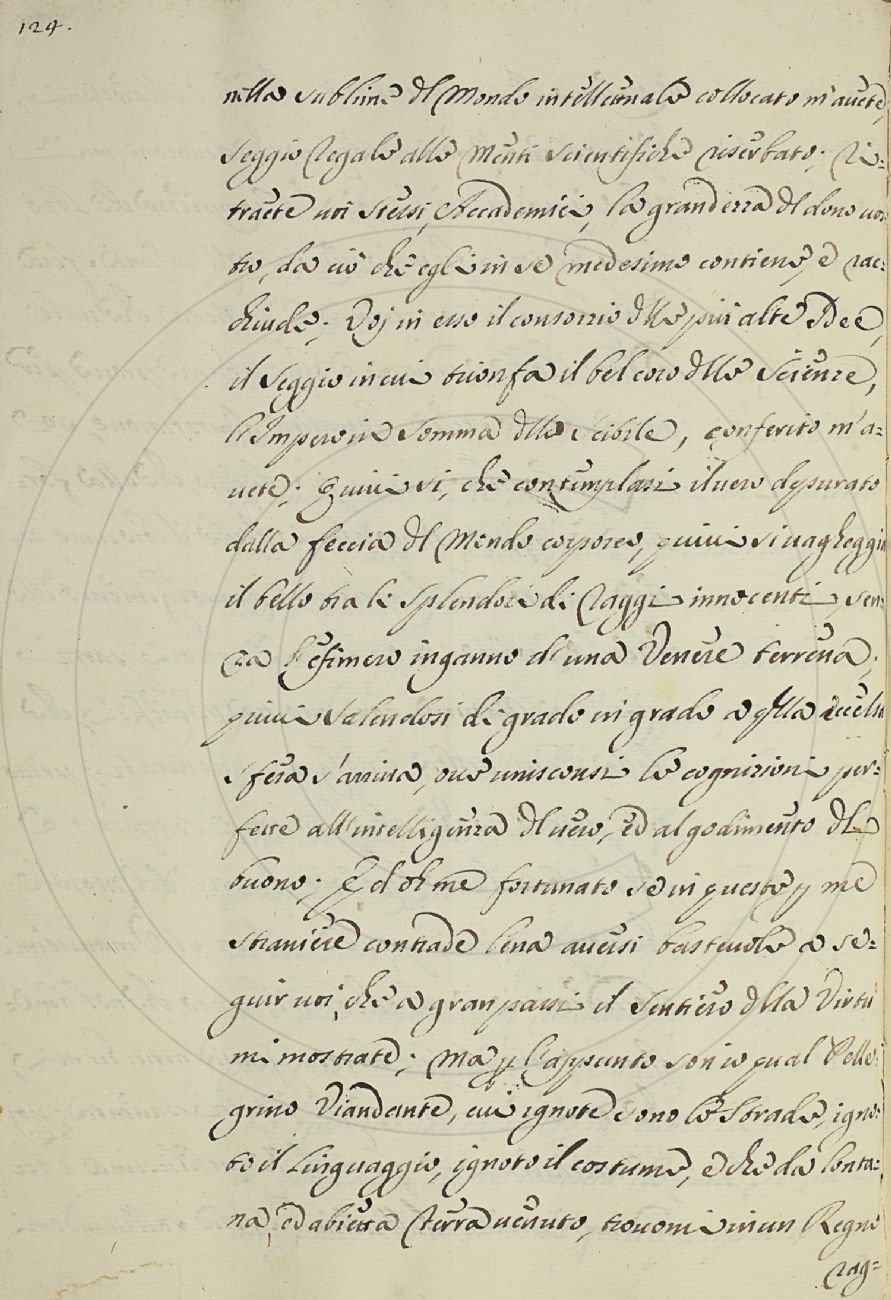 124.
nella sublime dl Mondo intellettuale collocato m'avete,
seggio Regale alle Menti scientifiche riserbato; Ri=
traete voi stessi, Accademici, la grandezza dl dono vos=
tro, da ciò che egli in se medesimo contiene, e rac=
chiude; Voj in esso il consorzio dlle più alte Idee,
il seggio in cui trionfa il bel coro dlle Scienze,
l'Impero in Somma dllo scibile, conferito m'a=
vete; Quivi si, che contemplasi il vero depurato
dalla feccia dl Mondo corporeo, quivi si vagheggia
il bello tra li splendori di Raggi innocenti, sen=
za l'efimero inganno d'una Venere terrena;
quivi salendosi di grado in grado a qlla eccelsa
sfera s'arriva, ove unisconsi le cognizioni per=
fette all'intelligenza dl vero, ed al godimento dl
buono. Ed oh me fortunato se in queste p me
straniere contrade lena avessi bastevole a se=
guir voi, che a gran passi il Sentiero dlla Virtù
mi mostrate; Ma p l'appunto son io qual Pelle=
grino Viandante, cui ignote sono le strade, igno=
to il Linguaggio, ignoto il costume, e che da lonta=
na, ed abietta Terra venuto, trovomi in un Regno
rag=